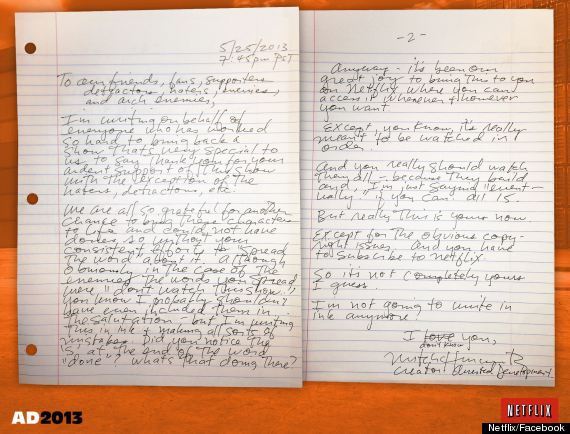 5/25/2013
7:45pm PST
To our friends, fans, supporters
detractors, haters, enemies,
and arch enemies,
I'm writing on behalf of
everyone who has worked
so hard to bring back a
show that's very special to
us, to say thank you for your
ardent support of this show
with the exception of the
haters, detractors, etc.
We are all so grateful for another
chance to bring these characters
to life and could not have
dones so without your
consistent effort to spread
the word about it. although
obviously in the case of the
enemies the words you spread
were "don't watch this show."
you know I probably shouldn't
have even included them in
the salutation, but I'm writing
this in ink & making all sorts of
mistakes. Did you notice the
"s" at the end of the word
"done"? what's that doing there?
-2-
Anyway - it's been our
great joy to bring this to you
on Netflix where you can
access it whenever & however
you want.
Except, you know, it's really
meant to be watched in
order.
And you really should watch
them all - because they build
and, I'm just saying "event-
ually" if you can. all 15.
But really this is yours now.
Except for the obvious copy-
right issues. And you have
to subscribe to Netflix.
So it's not completely yours
I guess.
I'm not going to write in
ink anymore!
I love you,
don't know
Mitch Hurwitz
creator Arrested Development
AD2013
NETFLIX
Netflix/Facebook